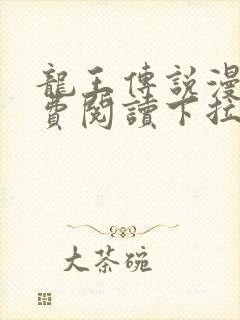 龍王傳說漫
費閱讀下拉
大茶碗